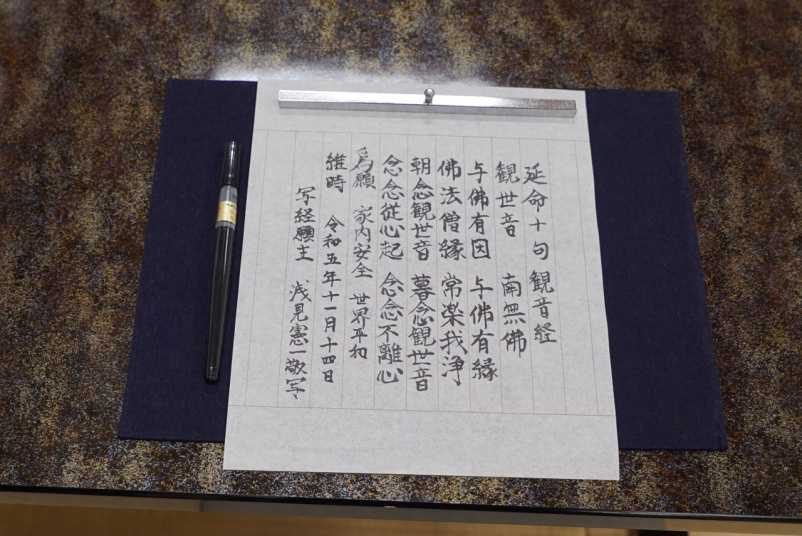 延命十句観音経
観世音　南無佛
与佛有因　与佛有縁
佛法僧縁　常楽我浄
朝念観世音　暮念観世音
念念従心起　念念不離心
為願　家内安全　世界平和
維時　令和五年十一月十四日
写経願主　浅見憲一敬写